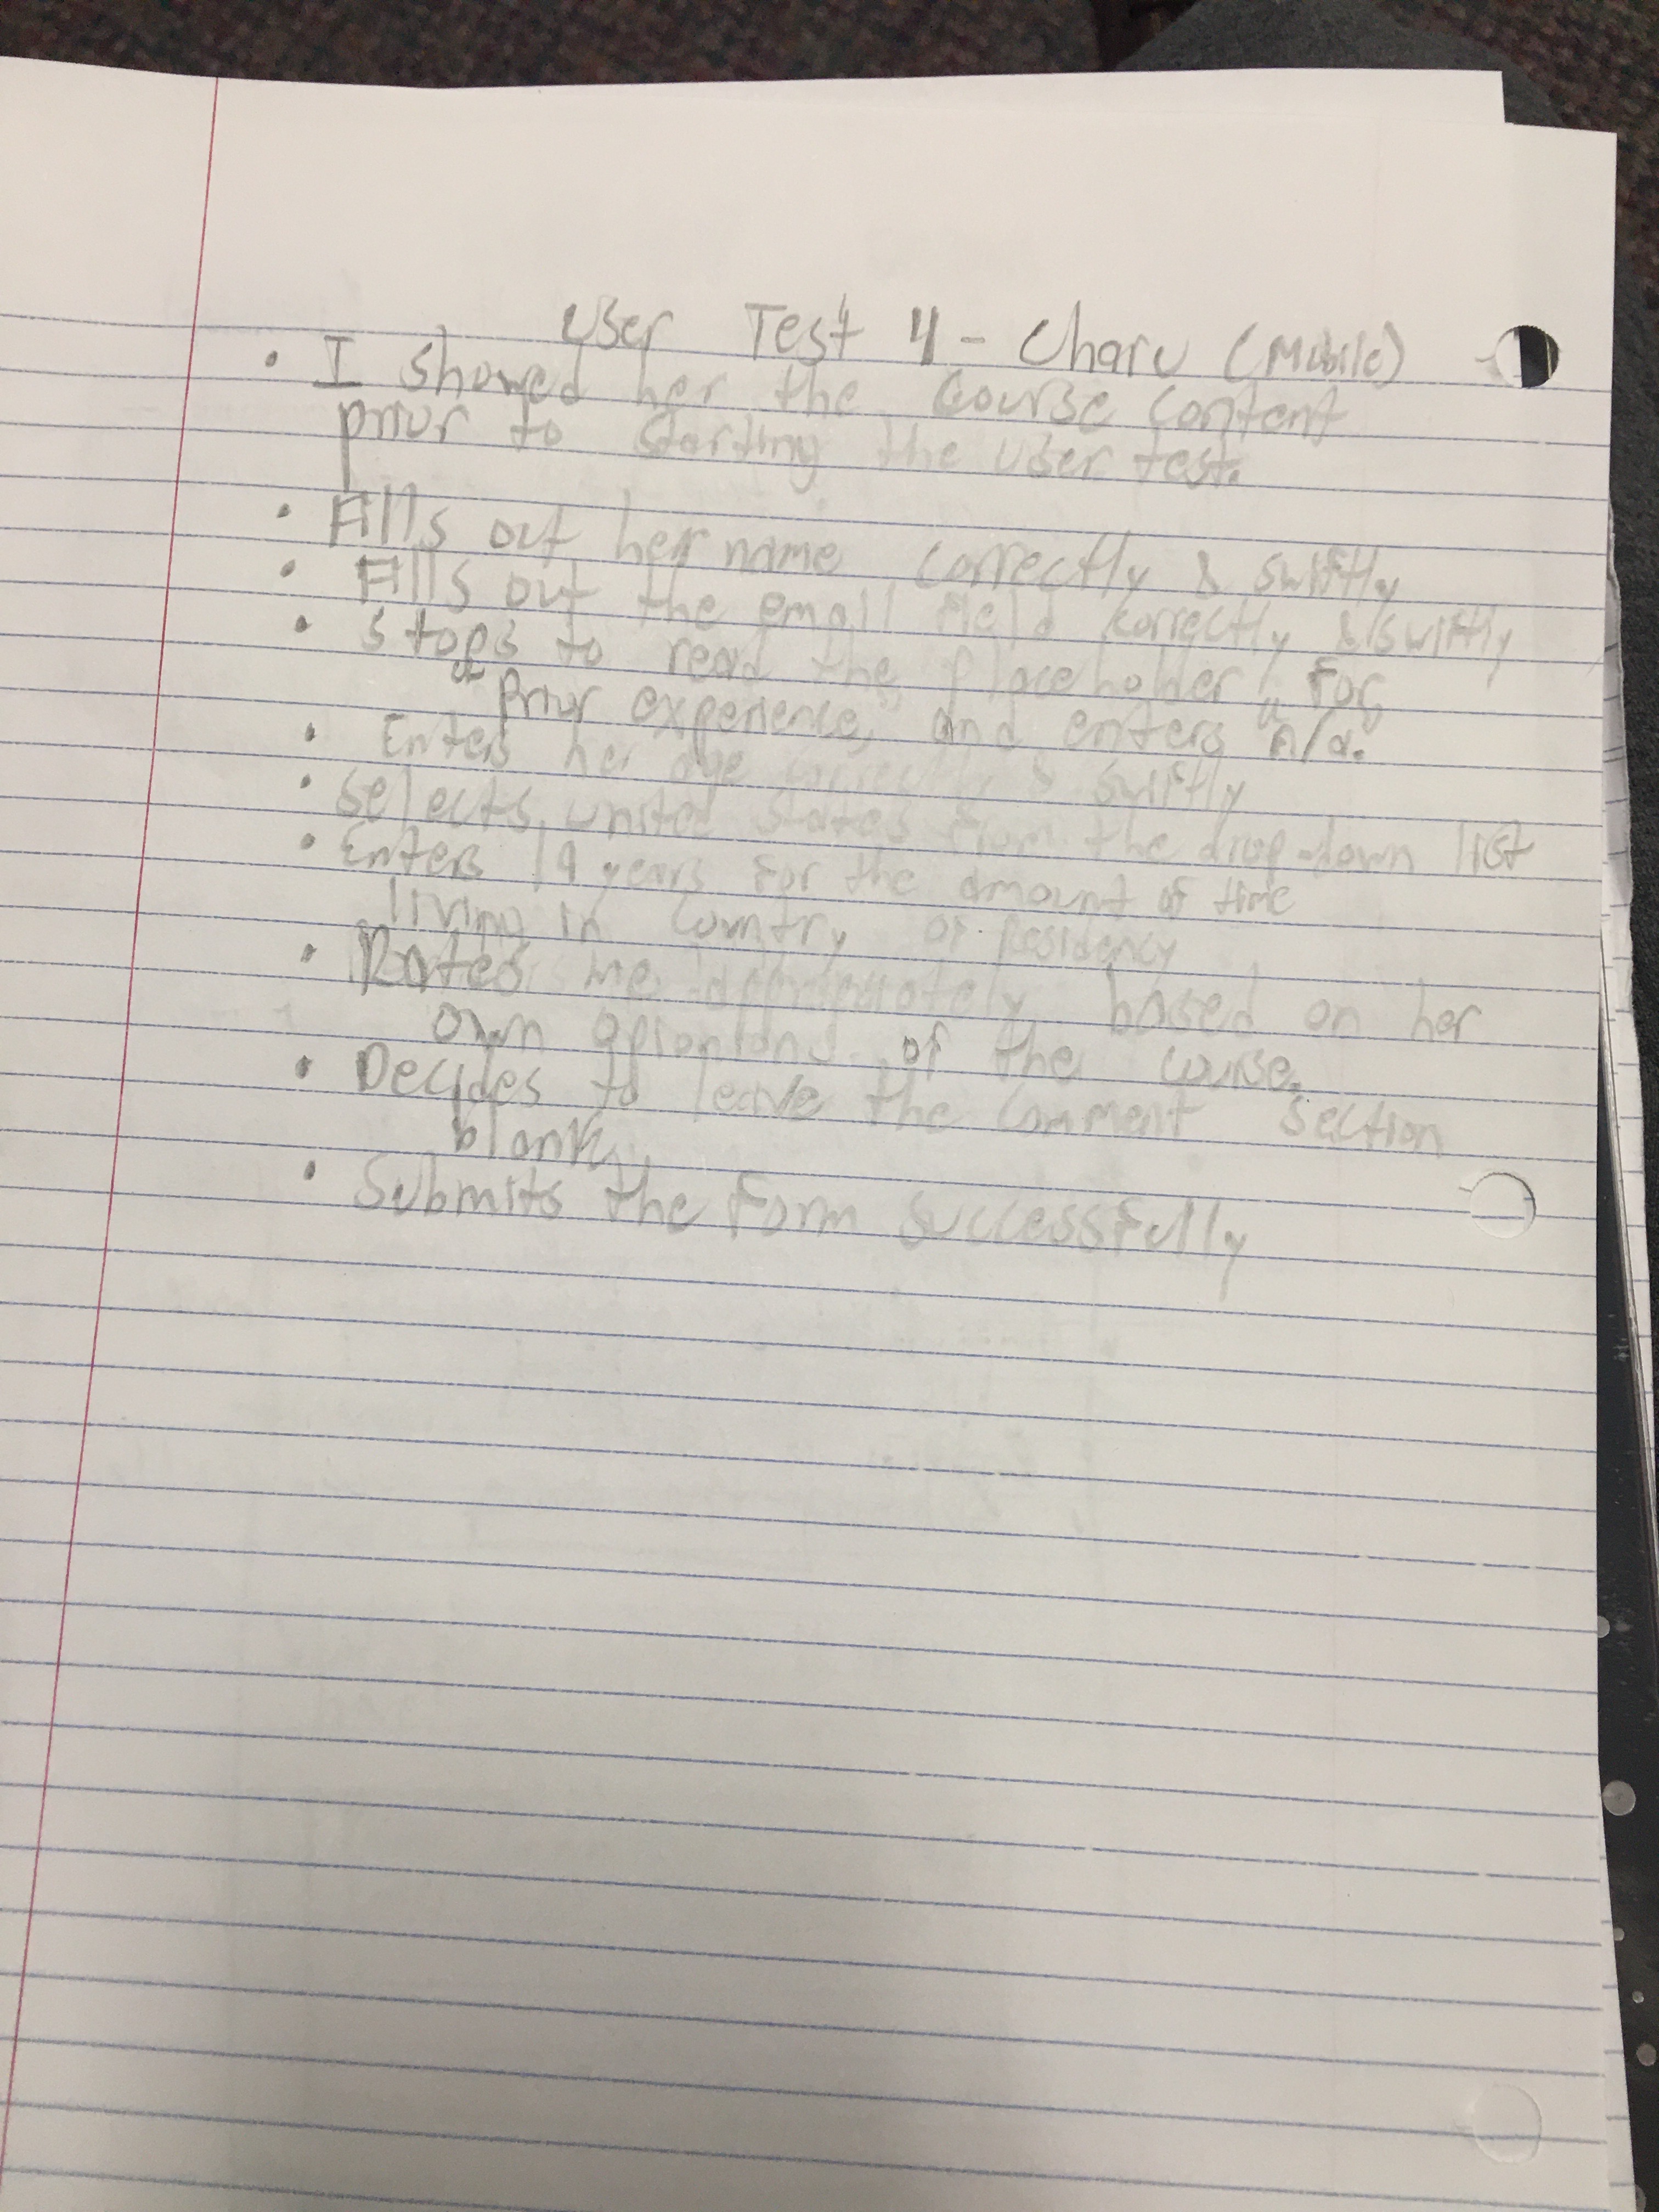 User Test 4 - Charu (Mobile)
• I showed her the course content
prior to starting the user test.
• Fills out her name correctly & swiftly
• Fills out the email field correctly & swiftly
• Stops to read the placeholder for
"Prior experience," and enters "n/a."
• Enters her age correctly & swiftly
• Selects united states from the drop-down list
• Enters 19 years for the amount of time
living in country of residency
• Rates me appropriately based on her
own of the course.
• Decides to leave the comment section
blank
• Submits the form successfully